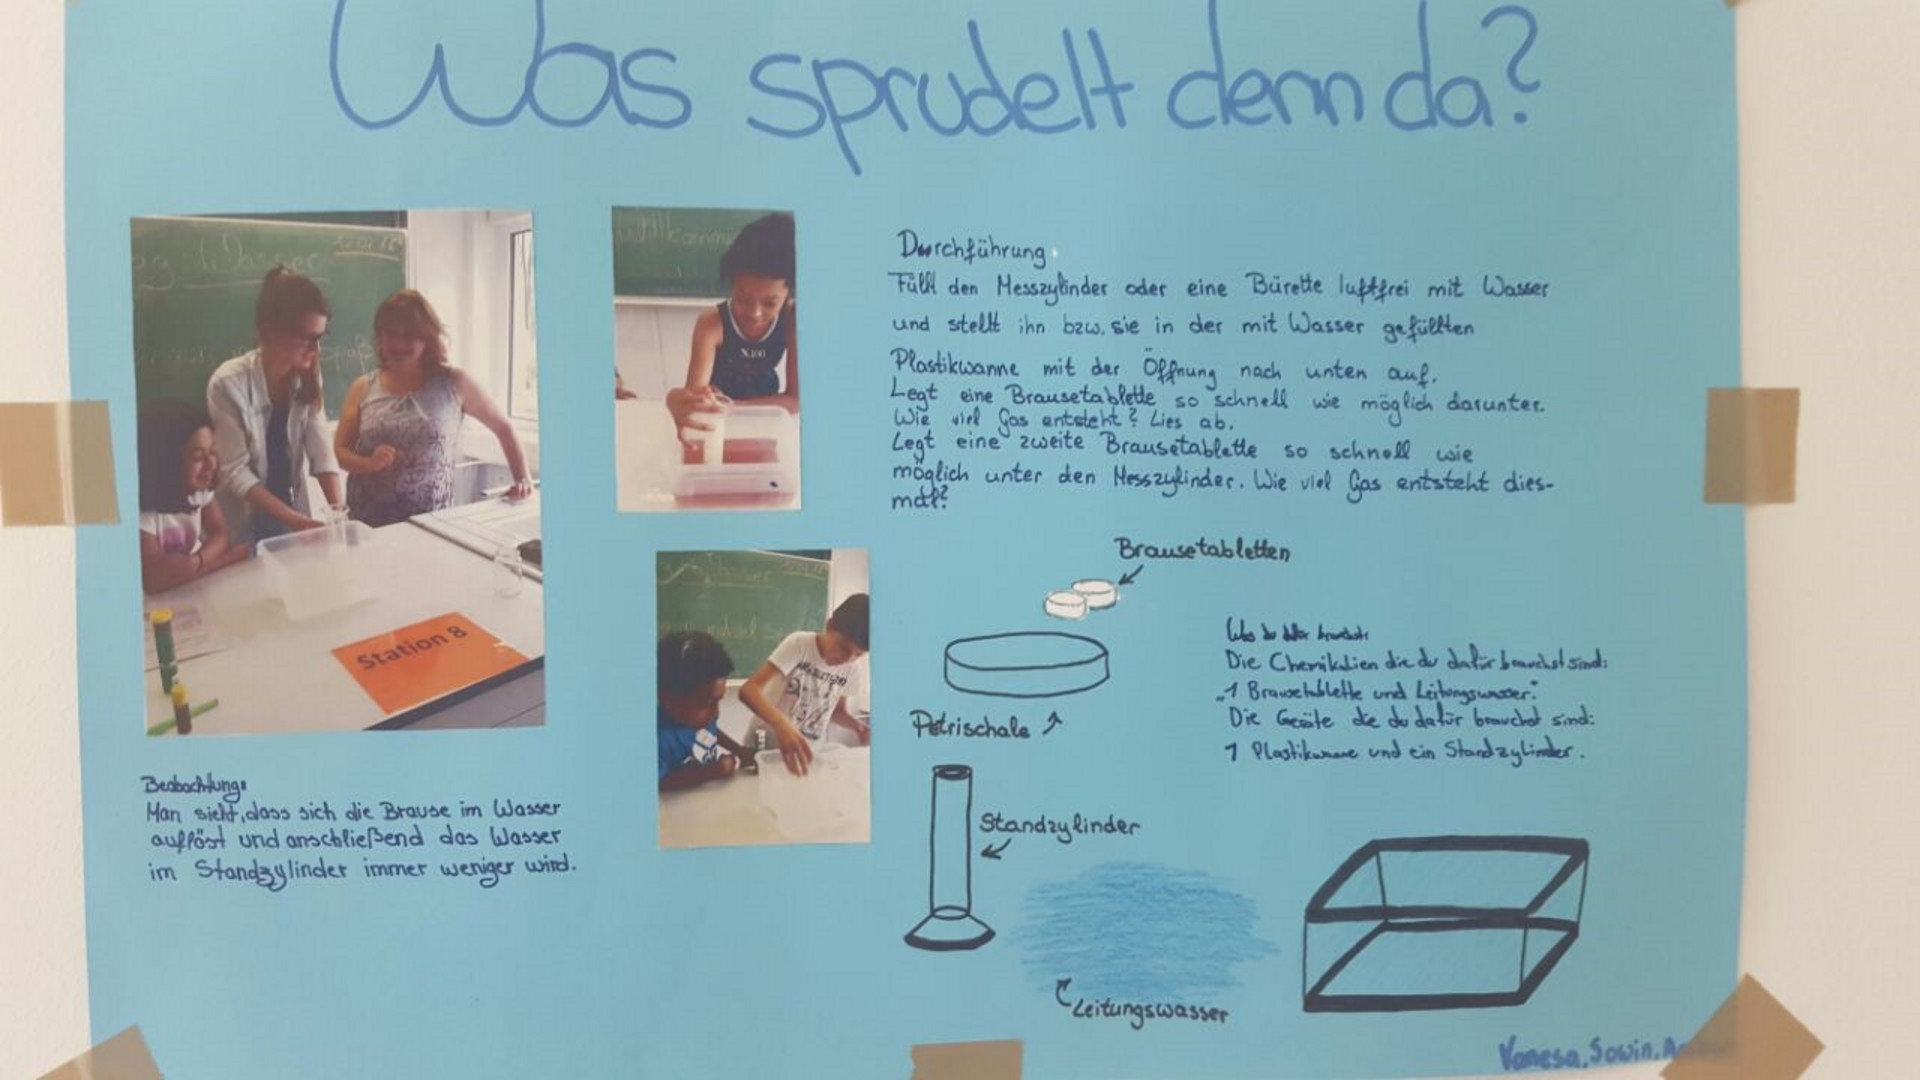 Was sprudelt denn da?
Wasser
Willkomme
Station 8
Durchführung:
Füllt den Messzylinder oder eine Bürette luftfrei mit Wasser
und stellt ihn bzw. sie in der mit Wasser gefüllten
Plastikwanne mit der Öffnung nach unten auf.
Legt eine Brausetablette so schnell wie möglich darunter.
Wie viel Gas entsteht? Lies ab.
Legt eine zweite Brausetablette so schnell wie
möglich unter den Messzylinder. Wie viel Gas entsteht dies-
mal?
Brausetabletten
Petrischale
Was du dafür brauchst:
Die Chemikalien die du dafür brauchst sind:
„1 Brausetablette und Leitungswasser."
Die Geräte die du dafür brauchst sind:
1 Plastikwanne und ein Standzylinder.
Standzylinder
Leitungswasser
Beobachtung:
Man sieht, dass sich die Brause im Wasser
auflöst und anschließend das Wasser
im Standzylinder immer weniger wird.
Vanesa, Sowin,